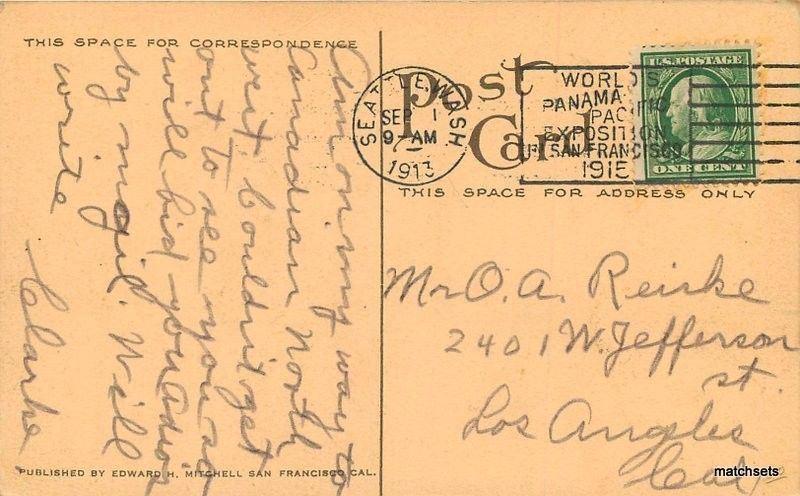 THIS SPACE FOR CORRESPONDENCE
Am on my way to
Canadian North
west. Couldn't get
out to see you so
will bid you adieu
by mail. Will
write
Clarke
PUBLISHED BY EDWARD H. MITCHELL SAN FRANCISCO, CAL.
Post
Card
THIS SPACE FOR ADDRESS ONLY
SEATTLE, WASH
SEP 1
9 AM
1913
WORLD'S
PANAMA PACIFIC
EXPOSITION
SAN FRANCISCO
1915
U.S. POSTAGE
ONE CENT
Mr O. A. Reiske
2401 W. Jefferson
st.
Los Angeles
Cal
matchsets